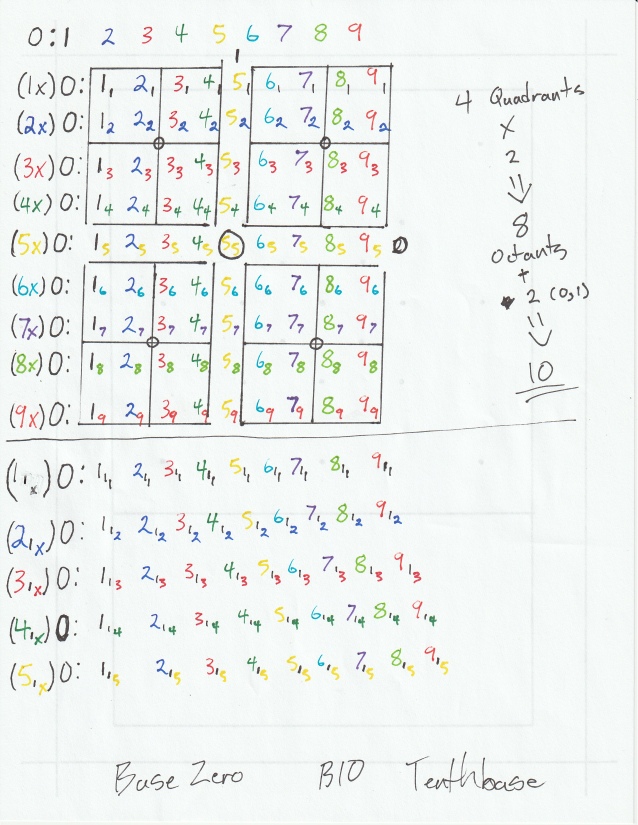 0:1 2 3 4 5 6 7 8 9
1
(1x) 0: 1₁ 2₁ 3₁ 4₁ 5₁ 6₁ 7₁ 8₁ 9₁
(2x) 0: 1₂ 2₂ 3₂ 4₂ 5₂ 6₂ 7₂ 8₂ 9₂
(3x) 0: 1₃ 2₃ 3₃ 4₃ 5₃ 6₃ 7₃ 8₃ 9₃
(4x) 0: 1₄ 2₄ 3₄ 4₄ 5₄ 6₄ 7₄ 8₄ 9₄
(5x) 0: 1₅ 2₅ 3₅ 4₅ 5₅ 6₅ 7₅ 8₅ 9₅ 0
(6x) 0: 1₆ 2₆ 3₆ 4₆ 5₆ 6₆ 7₆ 8₆ 9₆
(7x) 0: 1₇ 2₇ 3₇ 4₇ 5₇ 6₇ 7₇ 8₇ 9₇
(8x) 0: 1₈ 2₈ 3₈ 4₈ 5₈ 6₈ 7₈ 8₈ 9₈
(9x) 0: 1₉ 2₉ 3₉ 4₉ 5₉ 6₉ 7₉ 8₉ 9₉
4 Quadrants
X
2
⇓
8
Octants
+
2 (0,1)
⇓
10
(1₁ₓ) 0: 1₁₁ 2₁₁ 3₁₁ 4₁₁ 5₁₁ 6₁₁ 7₁₁ 8₁₁ 9₁₁
(2₁ₓ) 0: 1₁₂ 2₁₂ 3₁₂ 4₁₂ 5₁₂ 6₁₂ 7₁₂ 8₁₂ 9₁₂
(3₁ₓ) 0: 1₁₃ 2₁₃ 3₁₃ 4₁₃ 5₁₃ 6₁₃ 7₁₃ 8₁₃ 9₁₃
(4₁ₓ) 0: 1₁₄ 2₁₄ 3₁₄ 4₁₄ 5₁₄ 6₁₄ 7₁₄ 8₁₄ 9₁₄
(5₁ₓ) 0: 1₁₅ 2₁₅ 3₁₅ 4₁₅ 5₁₅ 6₁₅ 7₁₅ 8₁₅ 9₁₅
Base Zero B10 Tenthbase